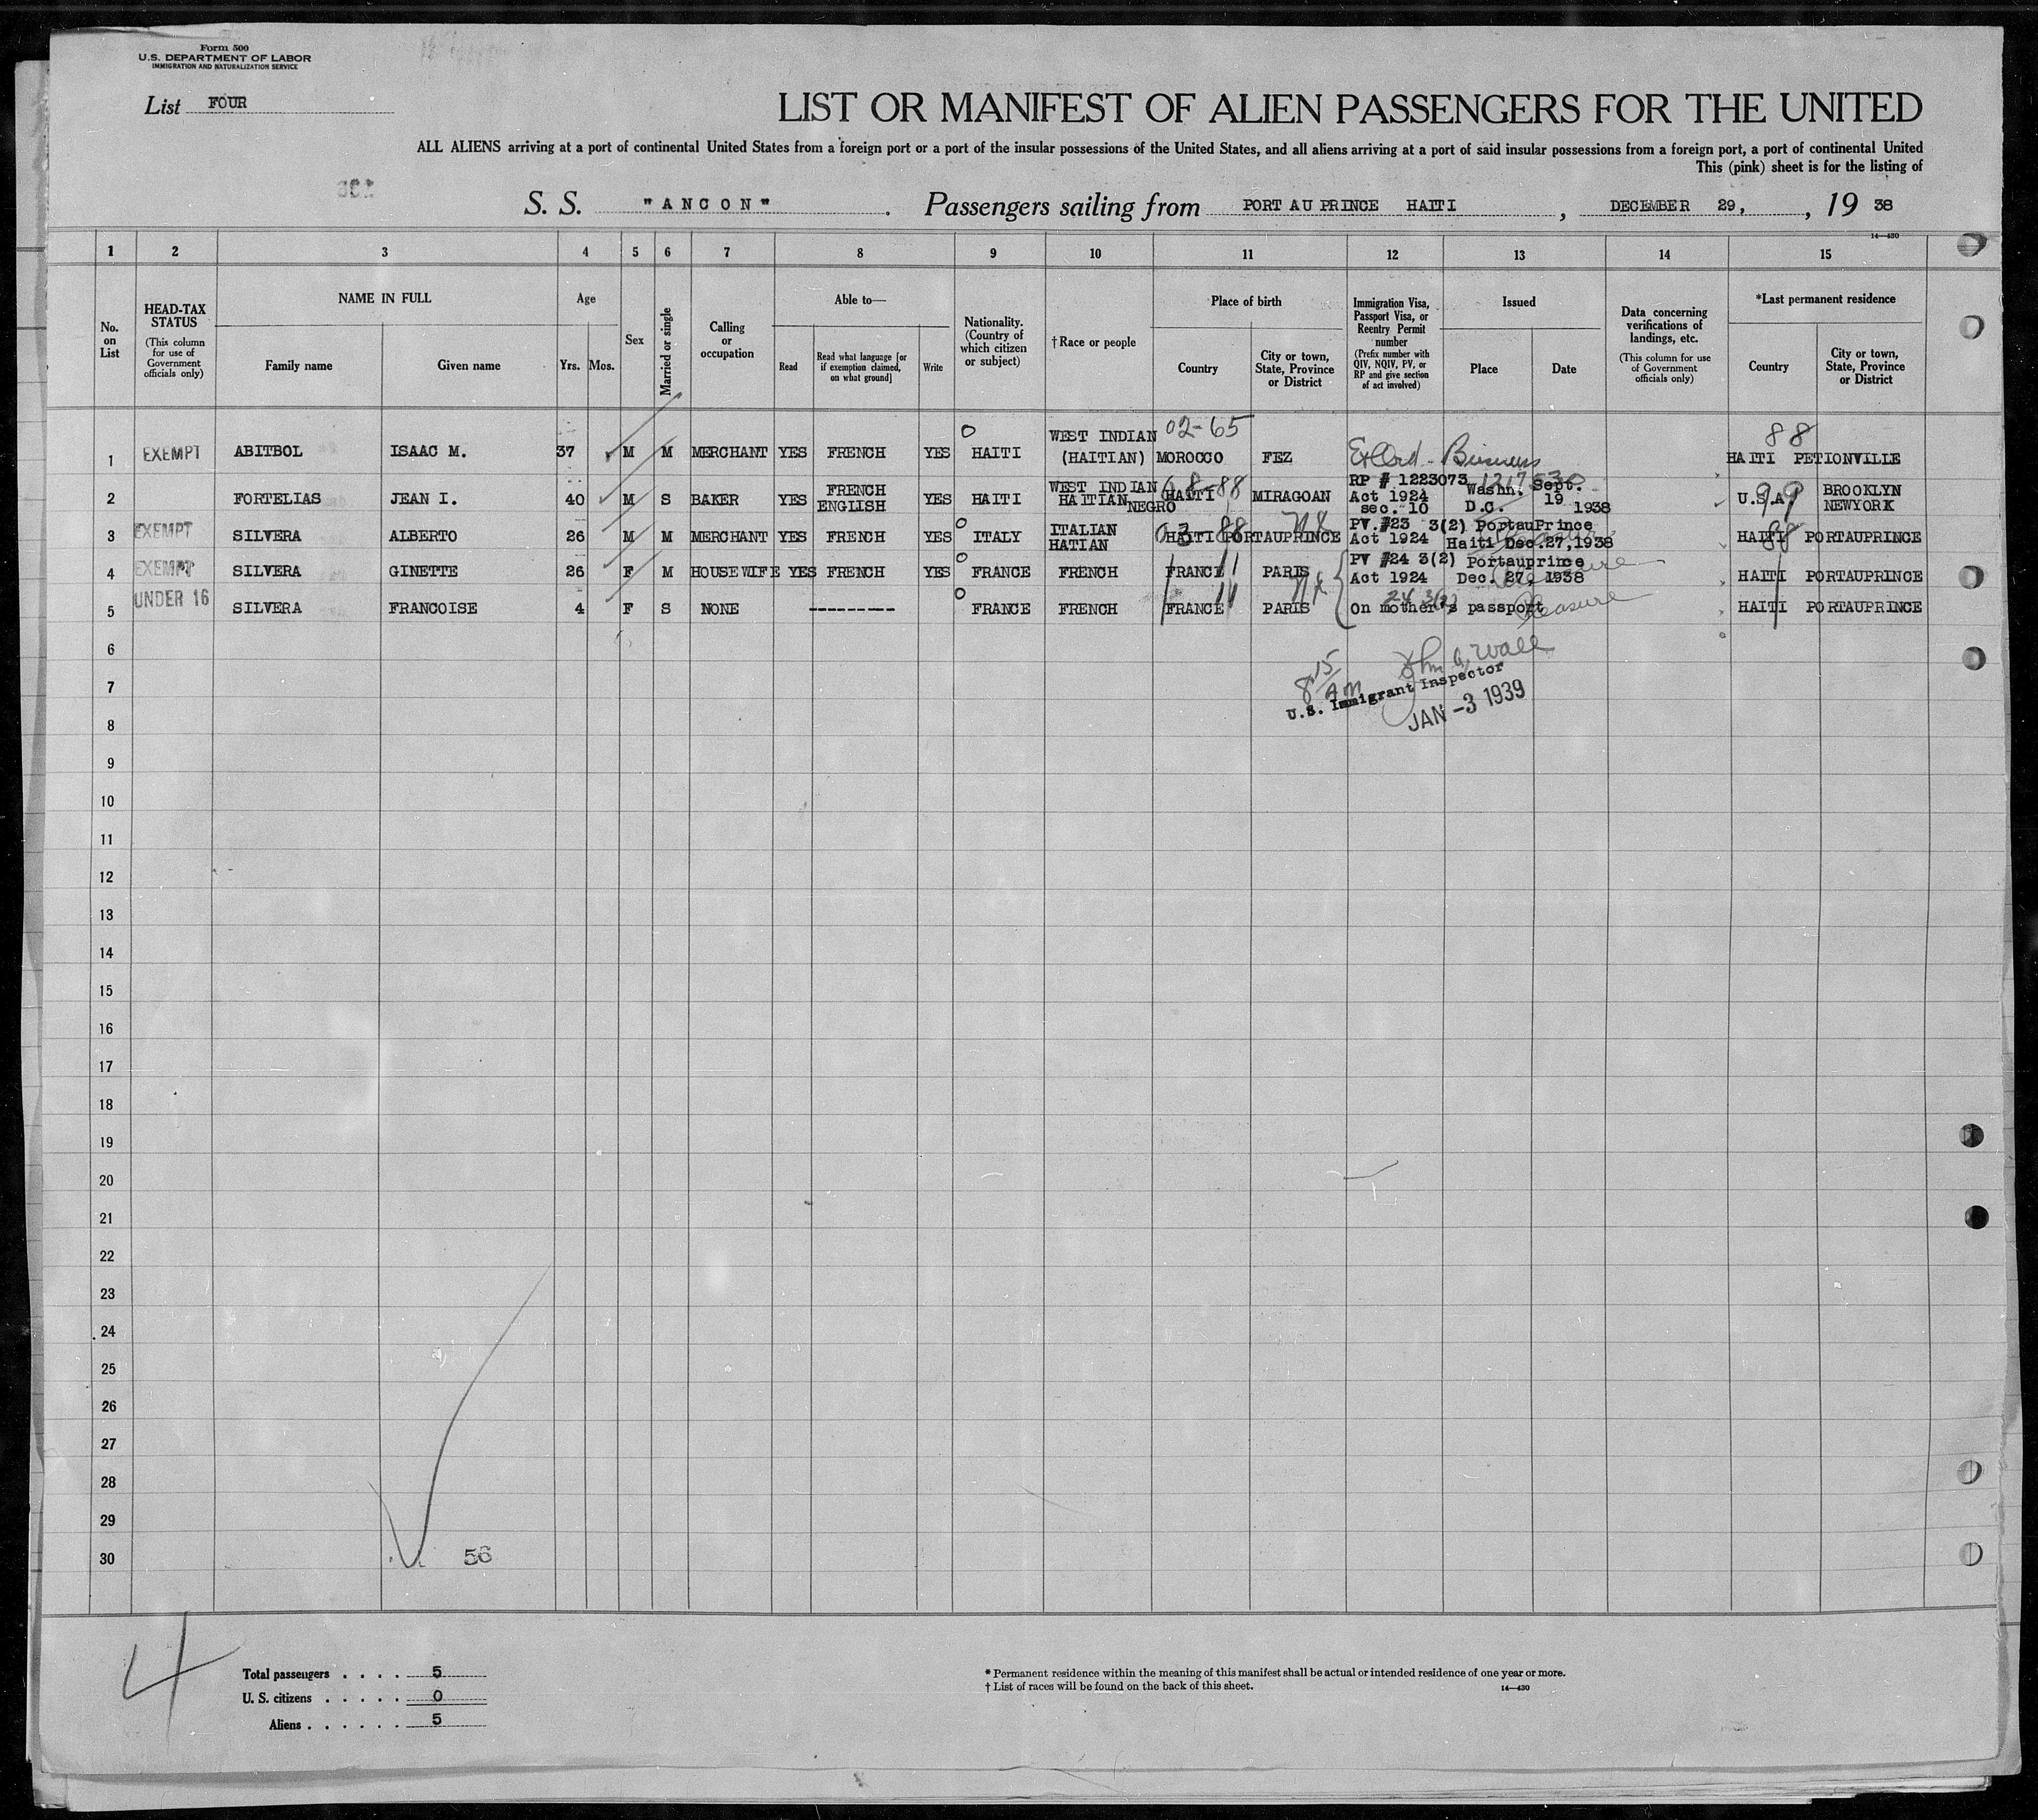 Form 500
U.S. DEPARTMENT OF LABOR
IMMIGRATION AND NATURALIZATION SERVICE
List FOUR
LIST OR MANIFEST OF ALIEN PASSENGERS FOR THE UNITED
ALL ALIENS arriving at a port of continental United States from a foreign port or a port of the insular possessions of the United States, and all aliens arriving at a port of said insular possessions from a foreign port, a port of continental United
This (pink) sheet is for the listing of
S. S. "ANCON". Passengers sailing from PORT AU PRINCE HAITI, DECEMBER 29, , 19 38
14—430
1 2 3 4 5 6 7 8 9 10 11 12 13 14 15
No. on List
HEAD-TAX STATUS (This column for use of Government officials only)
NAME IN FULL
Family name
Given name
Age
Yrs. Mos.
Sex
Married or single
Calling or occupation
Able to—
Read
Read what language [or if exemption claimed, on what ground]
Write
Nationality. (Country of which citizen or subject)
† Race or people
Place of birth
Country
City or town, State, Province or District
Immigration Visa, Passport Visa, or Reentry Permit number (Prefix number with QIV, NQIV, PV, or RP and give section of act involved)
Issued
Place
Date
Data concerning verifications of landings, etc. (This column for use of Government officials only)
*Last permanent residence
Country
City or town, State, Province or District
02-65
88
1 EXEMPT ABITBOL ISAAC M. 37 M M MERCHANT YES FRENCH YES HAITI WEST INDIAN (HAITIAN) MOROCCO FEZ Business HAITI PETIONVILLE
2 FORTELIAS JEAN I. 40 M S BAKER YES FRENCH ENGLISH YES HAITI WEST INDIAN HAITIAN NEGRO HAITI MIRAGOAN RP # 1223073 Act 1924 sec. 10 Washn. D.C. Sept. 19 1938 U.S.A. 99 BROOKLYN NEWYORK
3 EXEMPT SILVERA ALBERTO 26 M M MERCHANT YES FRENCH YES ITALY ITALIAN HATIAN HAITI PORTAUPRINCE PV.#23 3(2) PortauPrince Act 1924 Haiti Dec.27,1938 HAITI 88 PORTAUPRINCE
4 EXEMPT SILVERA GINETTE 26 F M HOUSEWIFE YES FRENCH YES FRANCE FRENCH FRANCE PARIS PV #24 3(2) Portauprince Act 1924 Dec. 27, 1938 HAITI PORTAUPRINCE
5 UNDER 16 SILVERA FRANCOISE 4 F S NONE ---------- FRANCE FRENCH FRANCE PARIS On mother's passport Pleasure HAITI PORTAUPRINCE
6
8 15 AM John A. Wall
7
U.S. Immigrant Inspector
JAN -3 1939
8
9
10
11
12
13
14
15
16
17
18
19
20
21
22
23
24
25
26
27
28
29
30
56
4
Total passengers . . . . 5
U. S. citizens . . . . . 0
Aliens . . . . . . 5
* Permanent residence within the meaning of this manifest shall be actual or intended residence of one year or more.
† List of races will be found on the back of this sheet.
14—430